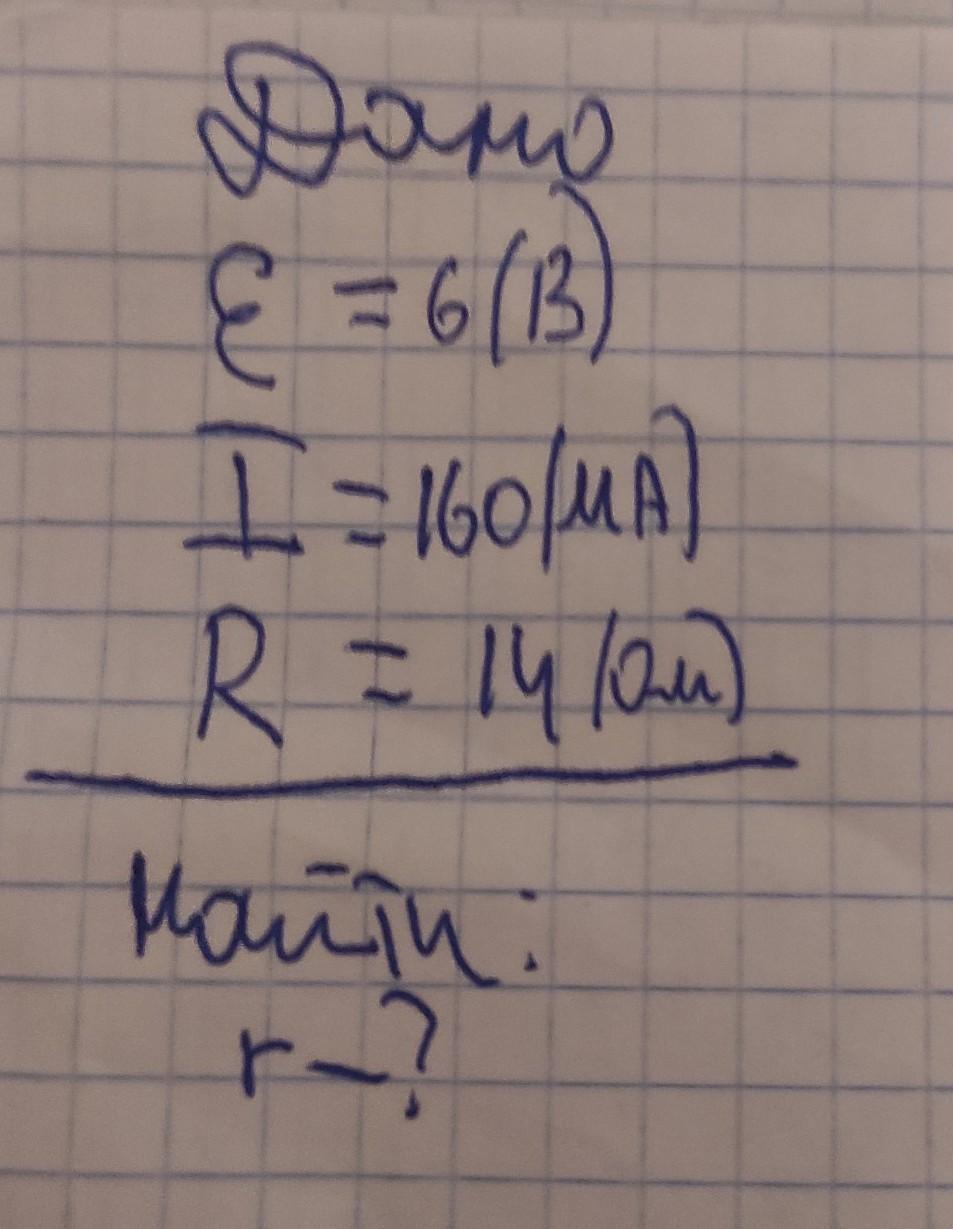 Дано
ℰ = 6 (В)
I = 160 (мА)
R = 14 (Ом)
Найти:
r - ?